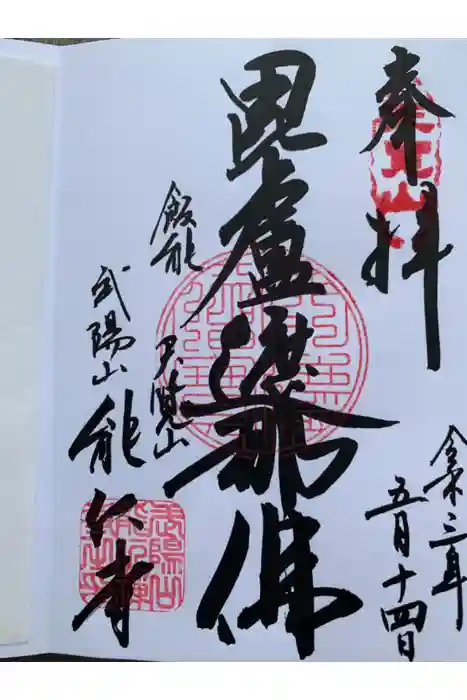 奉拝
令和三年
五月十四日
毘盧遮那佛
飯能 天覧山
武陽山 能仁寺